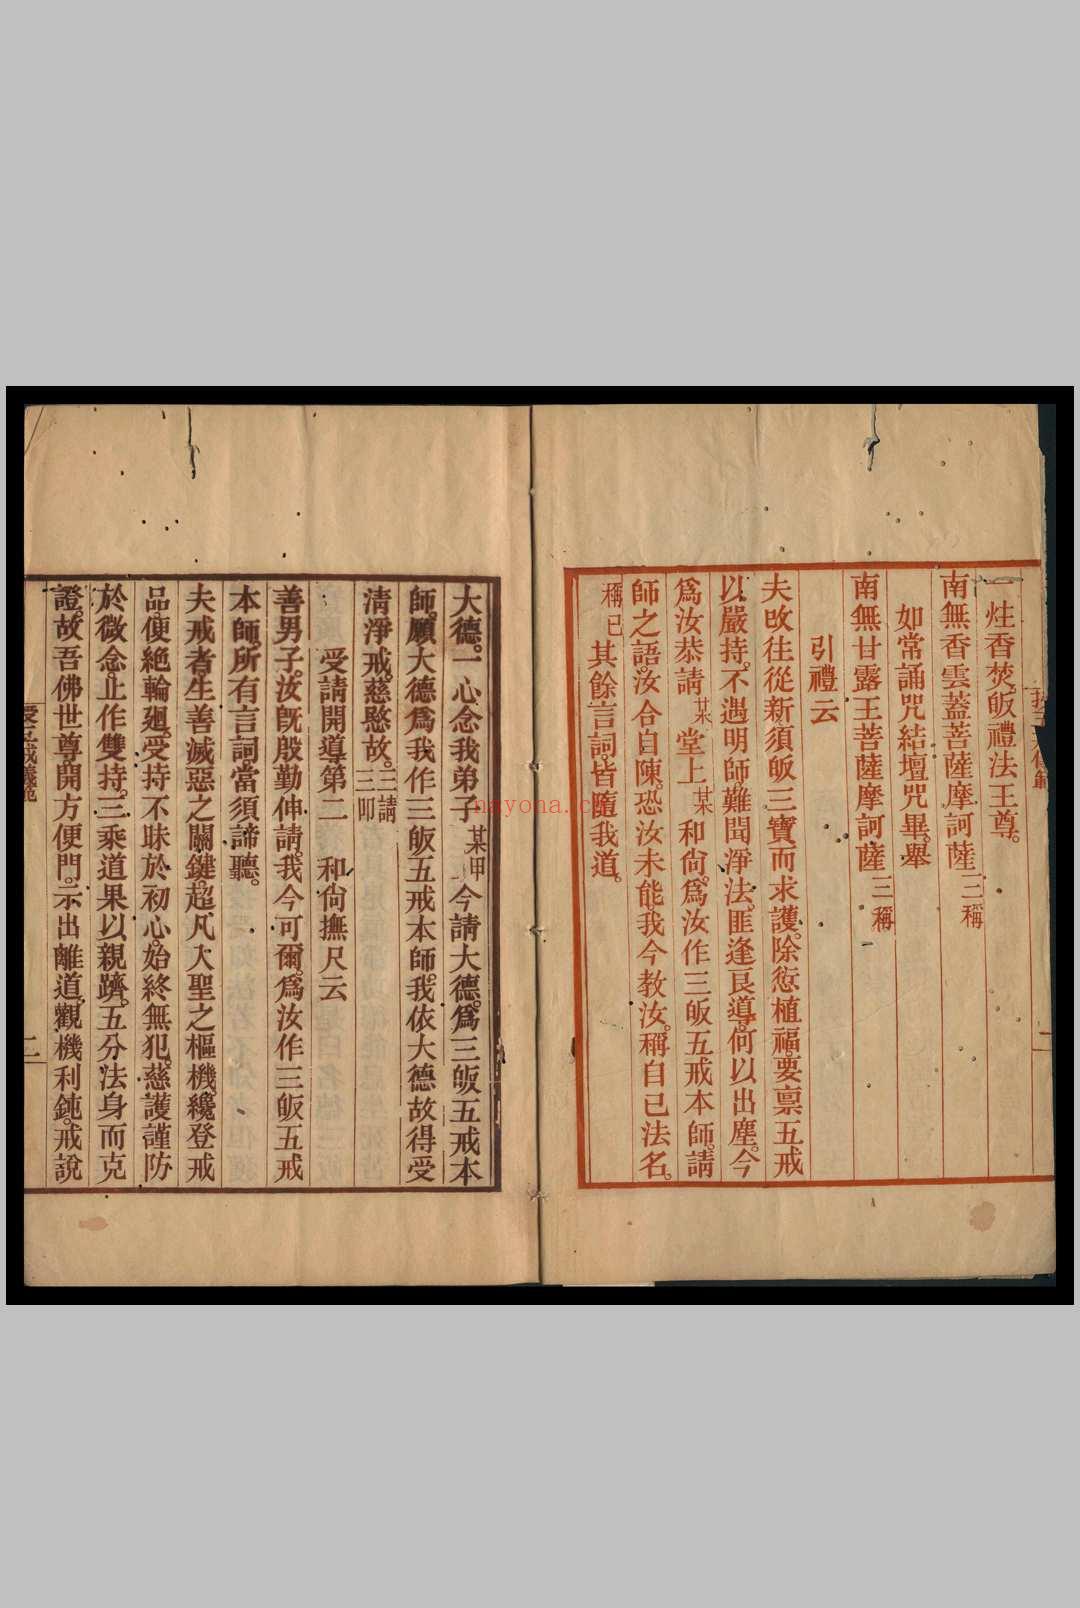 一炷香焚。皈禮法王尊。
南無香雲蓋菩薩摩訶薩三稱
如常誦咒結壇咒畢。舉
南無甘露王菩薩摩訶薩三稱
引禮云
夫改往從新。須皈三寶而求護。除愆植福。要禀五戒
以嚴持。不遇明師。難聞淨法。匪逢良導。何以出塵。今
爲汝恭請某堂上某和尙。爲汝作三皈五戒本師。請
師之語。汝合自陳。恐汝未能。我今教汝。稱自己法名。
稱已其餘言詞。皆隨我道。
大德。一心念。我弟子某甲今請大德。爲三皈五戒本
師。願大德爲我作三皈五戒本師。我依大德故。得受
清淨戒。慈愍故。三請三叩
受請開導第二 和尙撫尺云
善男子。汝既殷勤伸請。我今可爾。爲汝作三皈五戒
本師。所有言詞。當須諦聽。
夫戒者。生善滅惡之關鍵。超凡入聖之樞機。纔登戒
品。便絶輪廻。受持不昧於初心。始終無犯。慈護謹防
於微念。止作雙持。三乘道果以親躋。五分法身而克
證。故吾佛世尊。開方便門。示出離道。觀機利鈍。戒說
二
nayona.c